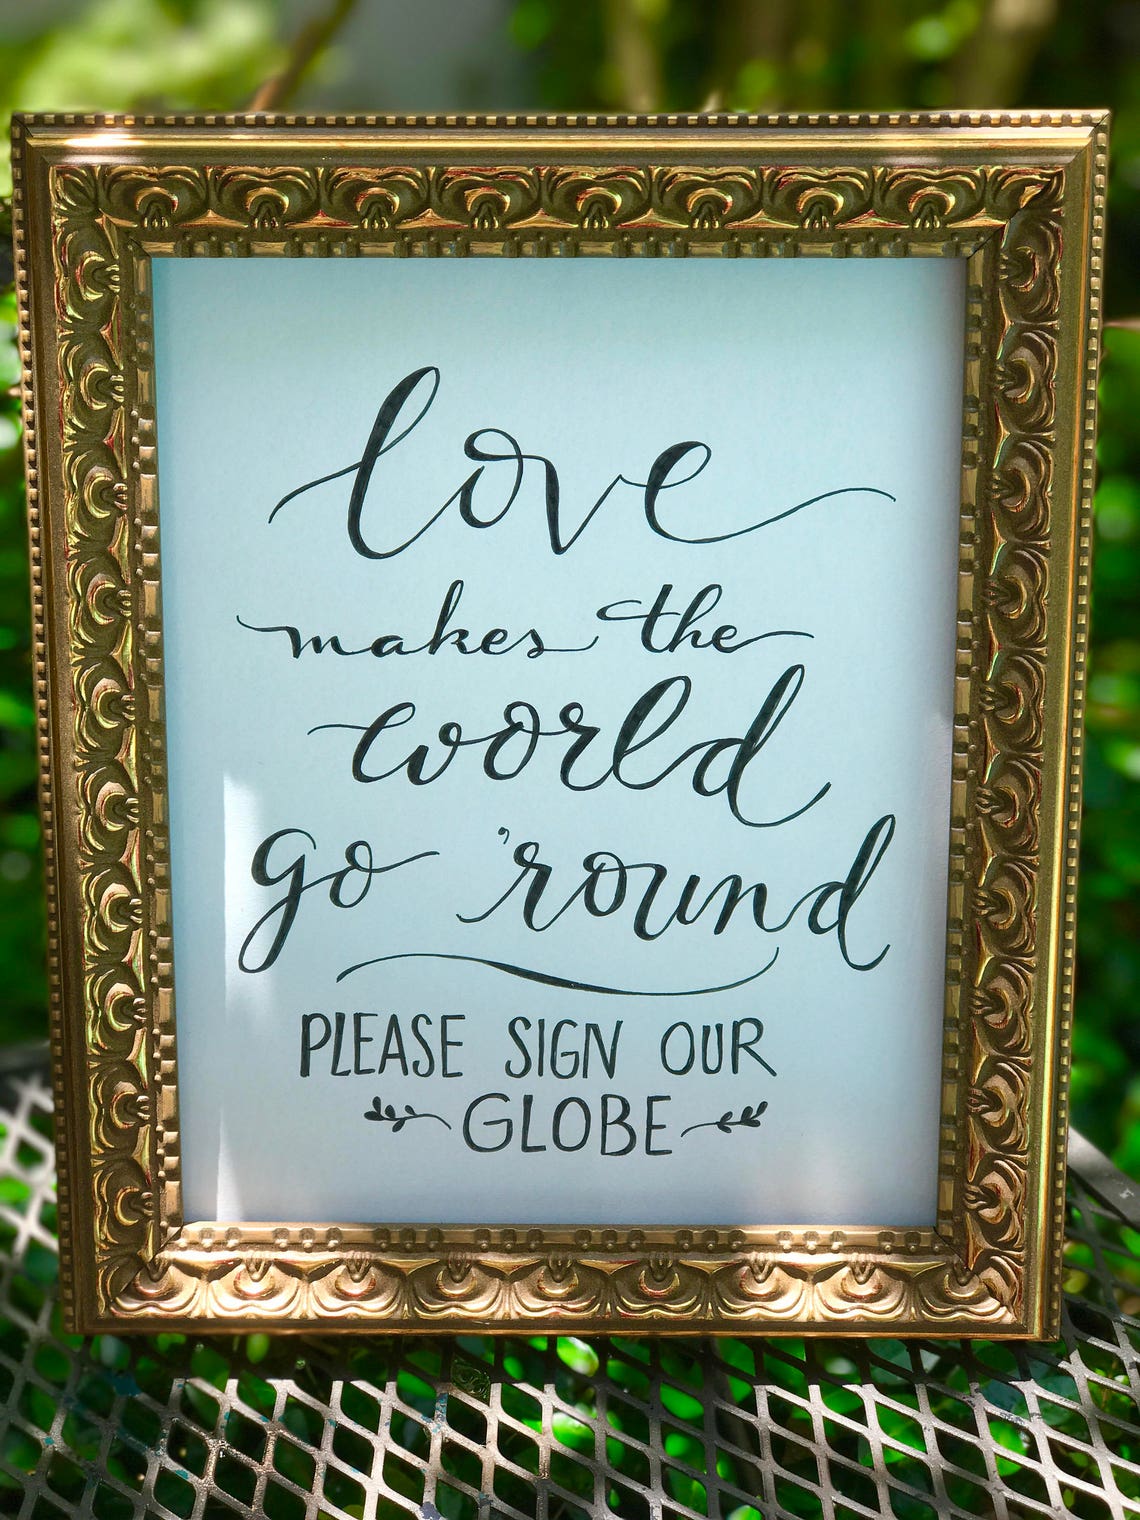 love
makes the
world
go 'round
PLEASE SIGN OUR
GLOBE